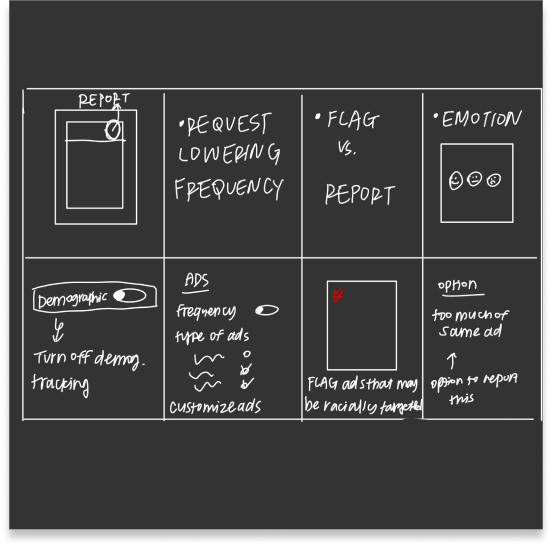 REPORT
• REQUEST
LOWERING
FREQUENCY
• FLAG
vs.
REPORT
• EMOTION
Demographic
Turn off demog.
tracking
ADS
frequency
type of ads
customize ads
FLAG ads that may
be racially targeted
option
too much of
same ad
option to report
this